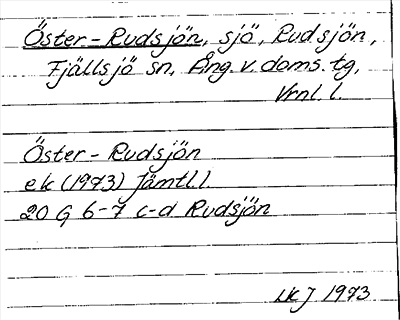 Öster-Rudsjön, sjö, Rudsjön,
Fjällsjö sn, Ång. v. doms. tg,
Vrnl. l.
Öster-Rudsjön
ek (1973) Jämtl. l.
20 G 6-7 c-d Rudsjön
1973